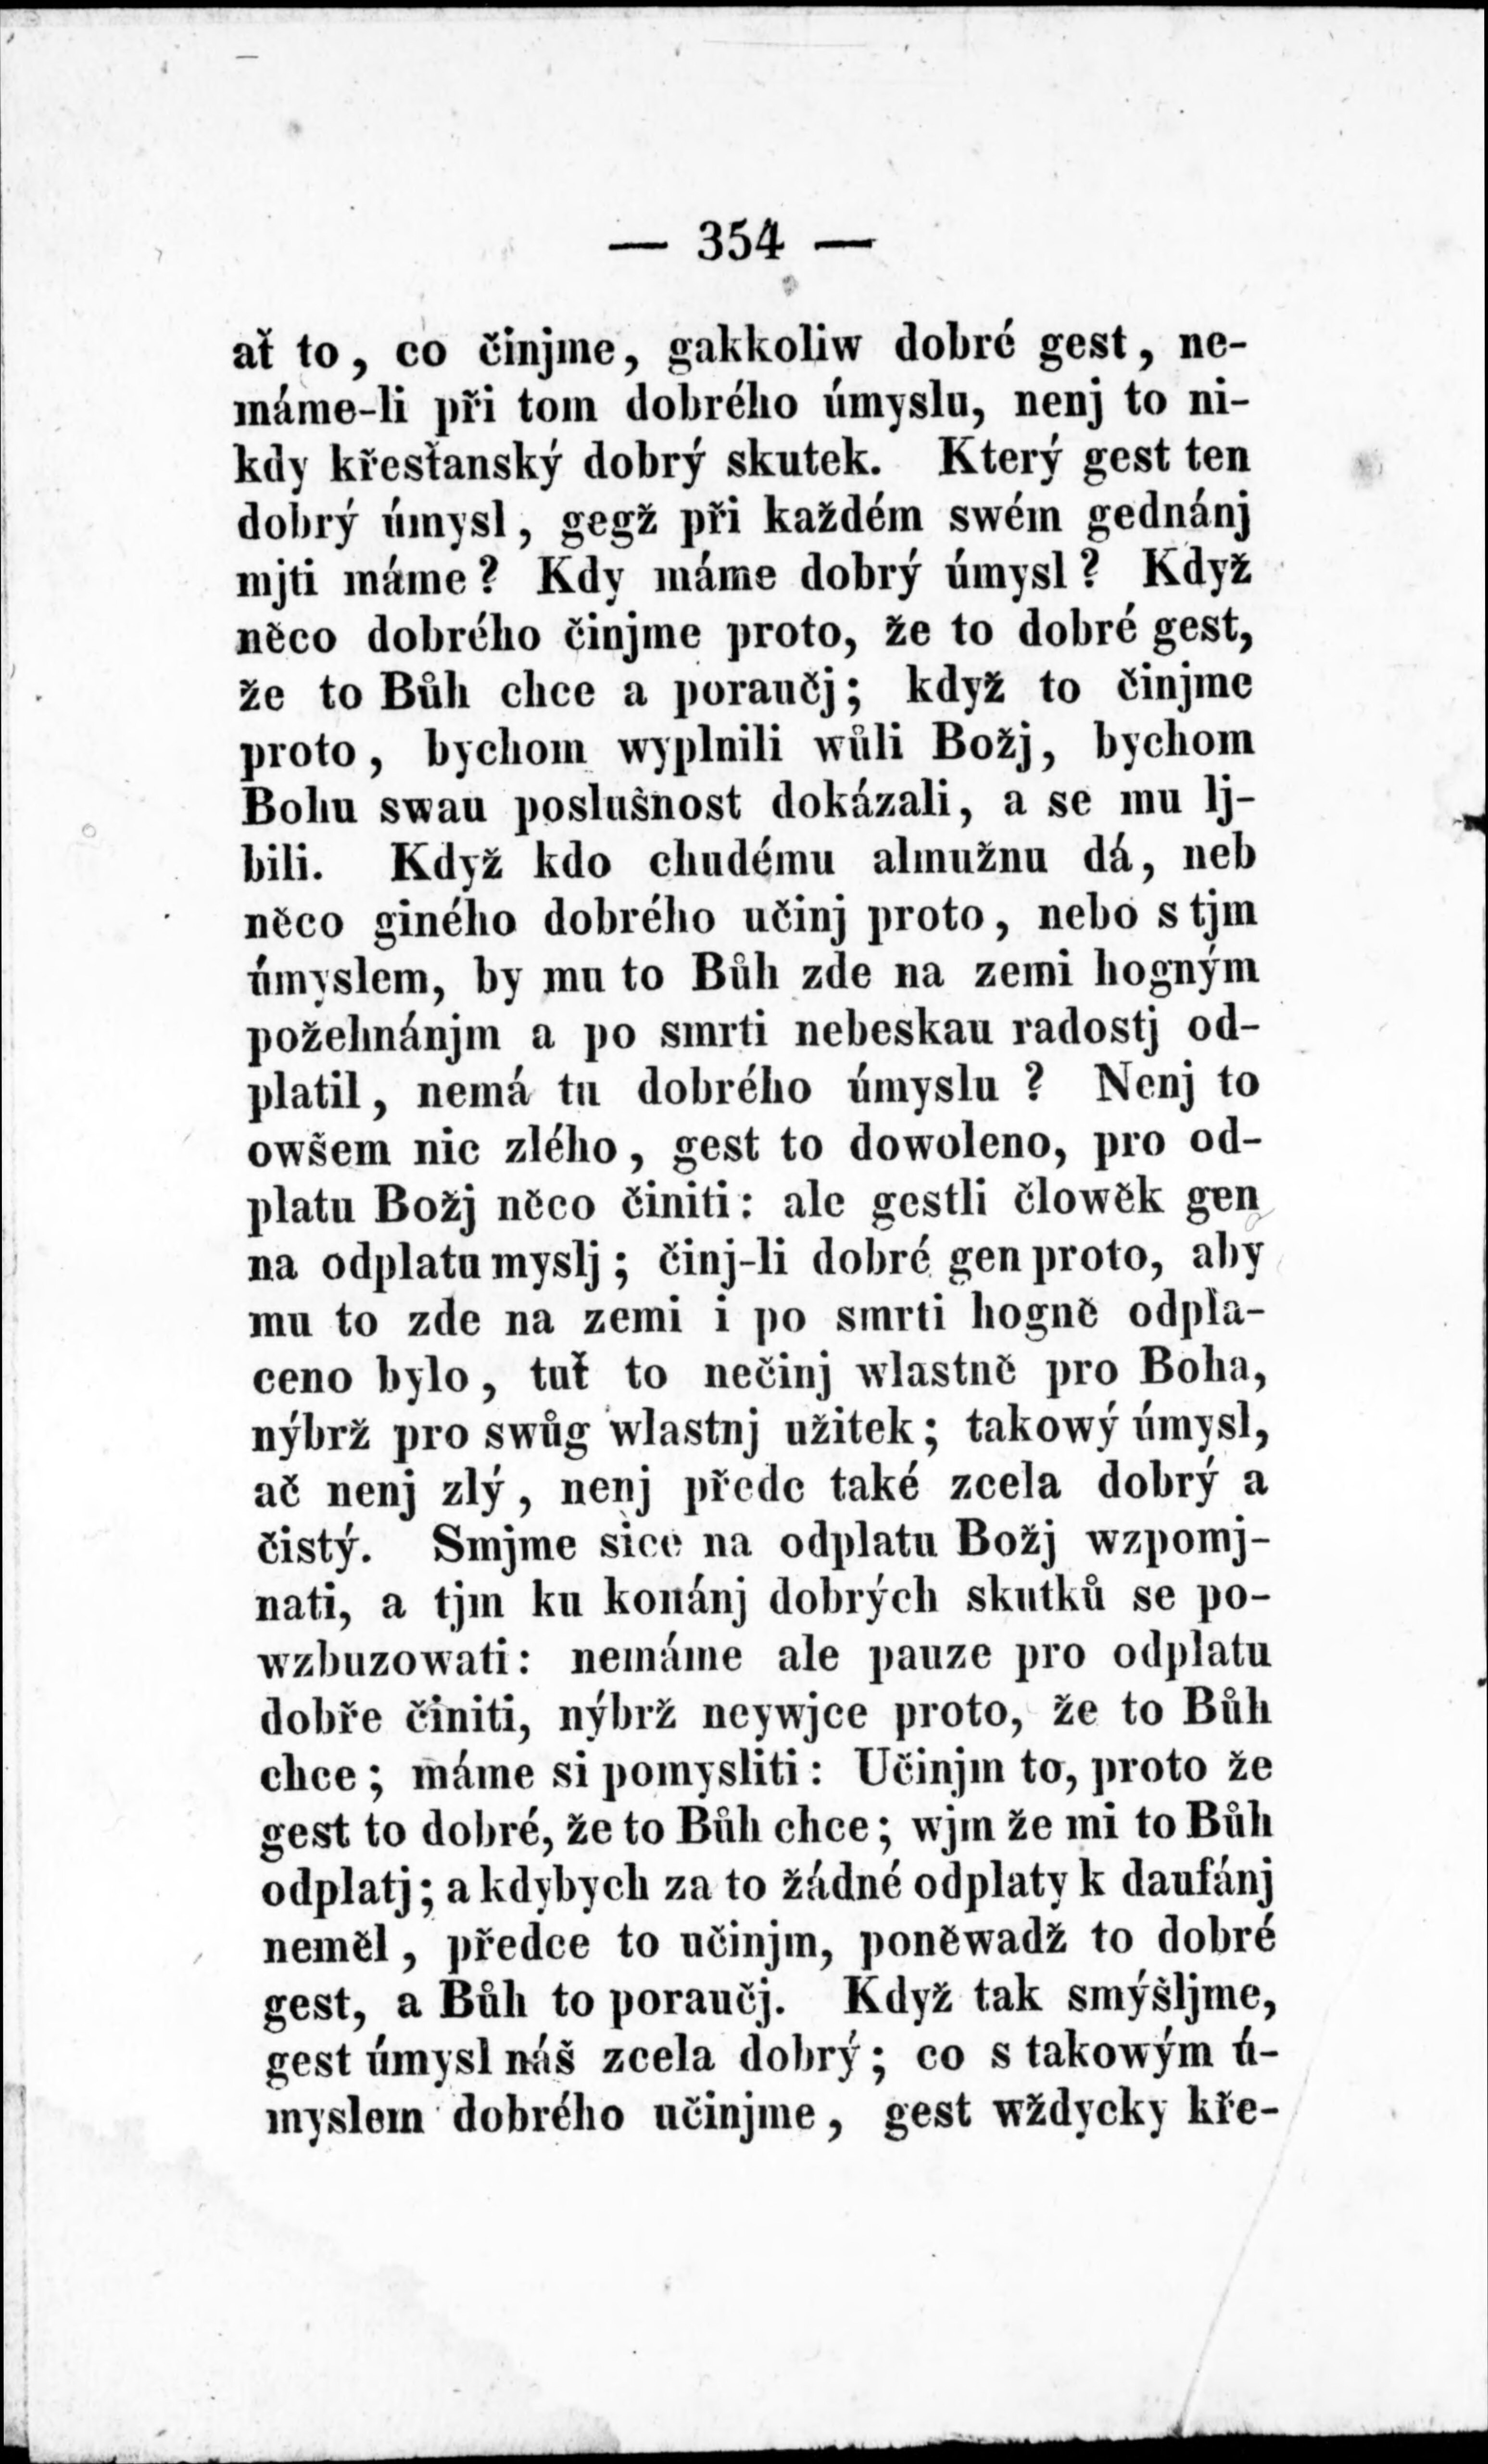 — 354 —
ať to, co činjme, gakkoliw dobré gest, ne-
máme-li při tom dobrého úmyslu, nenj to ni-
kdy křesťanský dobrý skutek. Který gest ten
dobrý úmysl, gegž při každém swém gednánj
mjti máme? Kdy máme dobrý úmysl? Když
něco dobrého činjme proto, že to dobré gest,
že to Bůh chce a poraučj; když to činjme
proto, bychom wyplnili wůli Božj, bychom
Bohu swau poslušnost dokázali, a se mu lj-
bili. Když kdo chudému almužnu dá, neb
něco giného dobrého učinj proto, nebo s tjm
úmyslem, by mu to Bůh zde na zemi hogným
požehnánjm a po smrti nebeskau radostj od-
platil, nemá tu dobrého úmyslu? Nenj to
owšem nic zlého, gest to dowoleno, pro od-
platu Božj něco činiti: ale gestli člowěk gen
na odplatu myslj; činj-li dobré gen proto, aby
mu to zde na zemi i po smrti hogně odpla-
ceno bylo, tuť to nečinj wlastně pro Boha,
nýbrž pro swůg wlastnj užitek; takowý úmysl,
ač nenj zlý, nenj předc také zcela dobrý a
čistý. Smjme sice na odplatu Božj wzpomj-
nati, a tjm ku konánj dobrých skutků se po-
wzbuzowati: nemáme ale pauze pro odplatu
dobře činiti, nýbrž neywjce proto, že to Bůh
chce; máme si pomysliti: Učinjm to, proto že
gest to dobré, že to Bůh chce; wjm že mi to Bůh
odplatj; a kdybych za to žádné odplaty k daufánj
neměl, předce to učinjm, poněwadž to dobré
gest, a Bůh to poraučj. Když tak smýšljme,
gest úmysl náš zcela dobrý; co s takowým ú-
myslem dobrého učinjme, gest wždycky kře-